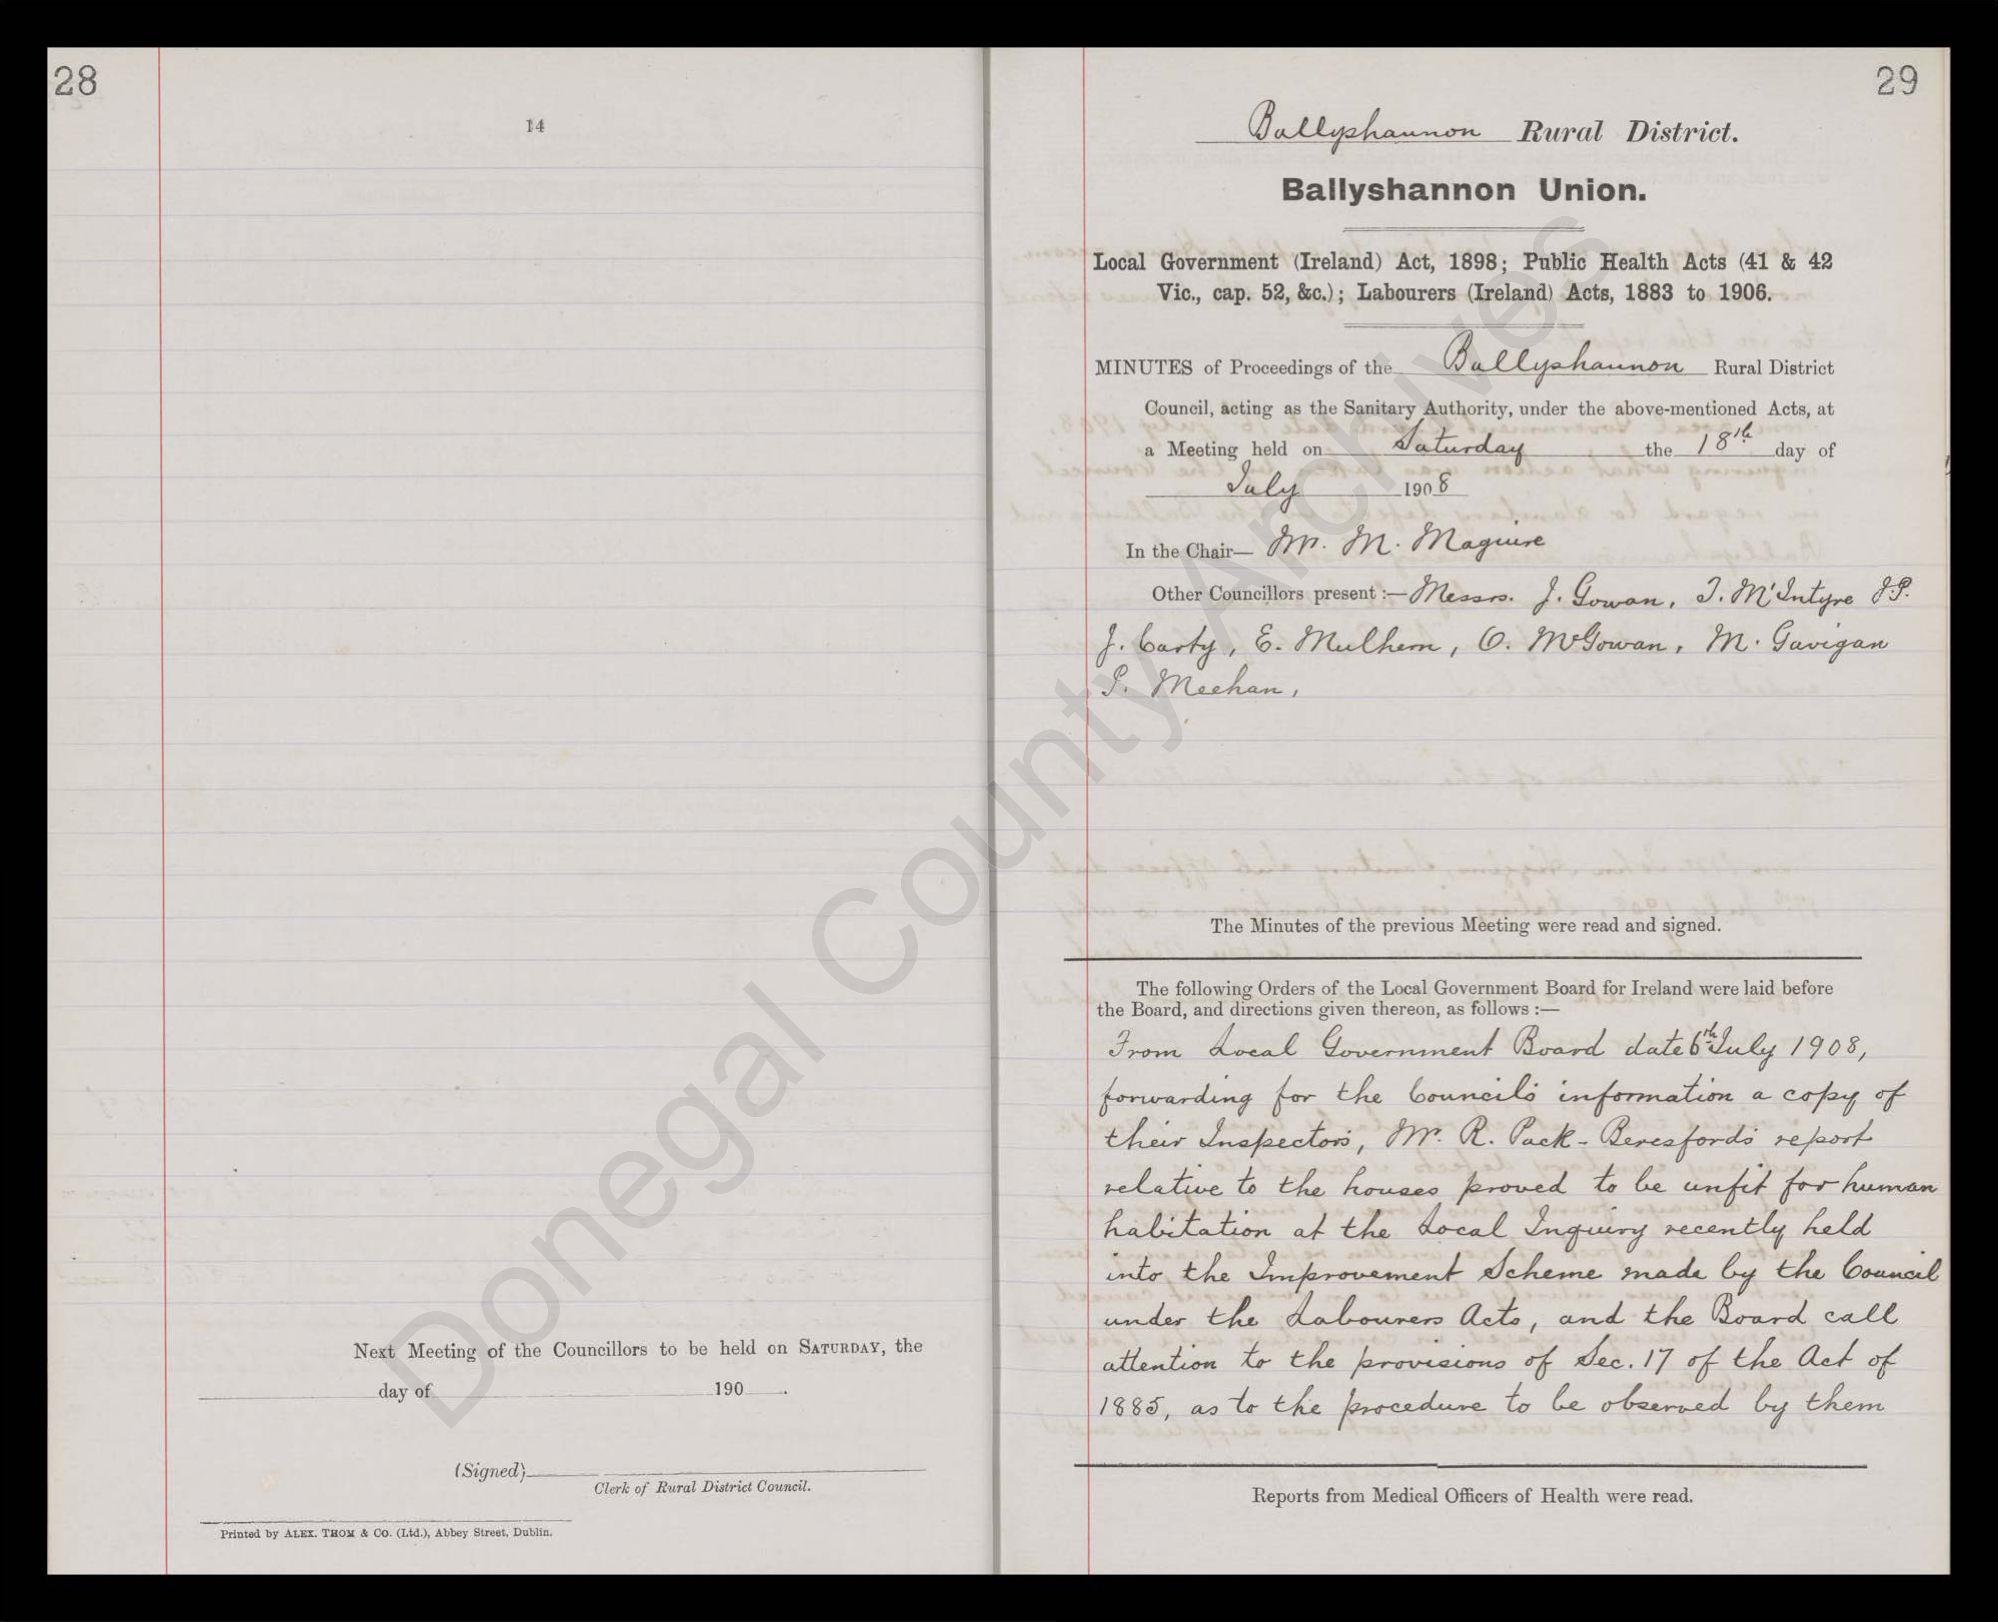 28
14
Next Meeting of the Councillors to be held on SATURDAY, the
day of 190 .
(Signed)
Clerk of Rural District Council.
Printed by ALEX. THOM & CO. (Ltd.), Abbey Street, Dublin.
29
Ballyshannon Rural District.
Ballyshannon Union.
Local Government (Ireland) Act, 1898; Public Health Acts (41 & 42
Vic., cap. 52, &c.); Labourers (Ireland) Acts, 1883 to 1906.
MINUTES of Proceedings of the Ballyshannon Rural District
Council, acting as the Sanitary Authority, under the above-mentioned Acts, at
a Meeting held on Saturday, the 18th day of
July 1908
In the Chair— Mr. M. Maguire
Other Councillors present :— Messrs. J. Gowan, T. McIntyre J.P.
J. Carty, E. Mulhern, O. McGowan, M. Gavigan
P. Meehan,
The Minutes of the previous Meeting were read and signed.
The following Orders of the Local Government Board for Ireland were laid before
the Board, and directions given thereon, as follows :—
From Local Government Board date 6th July 1908,
forwarding for the Council's information a copy of
their Inspector's, Mr. R. Pack-Beresford's report
relative to the houses proved to be unfit for human
habitation at the Local Inquiry recently held
into the Improvement Scheme made by the Council
under the Labourers Acts, and the Board call
attention to the provisions of Sec. 17 of the Act of
1885, as to the procedure to be observed by them
Reports from Medical Officers of Health were read.
Donegal County Archives